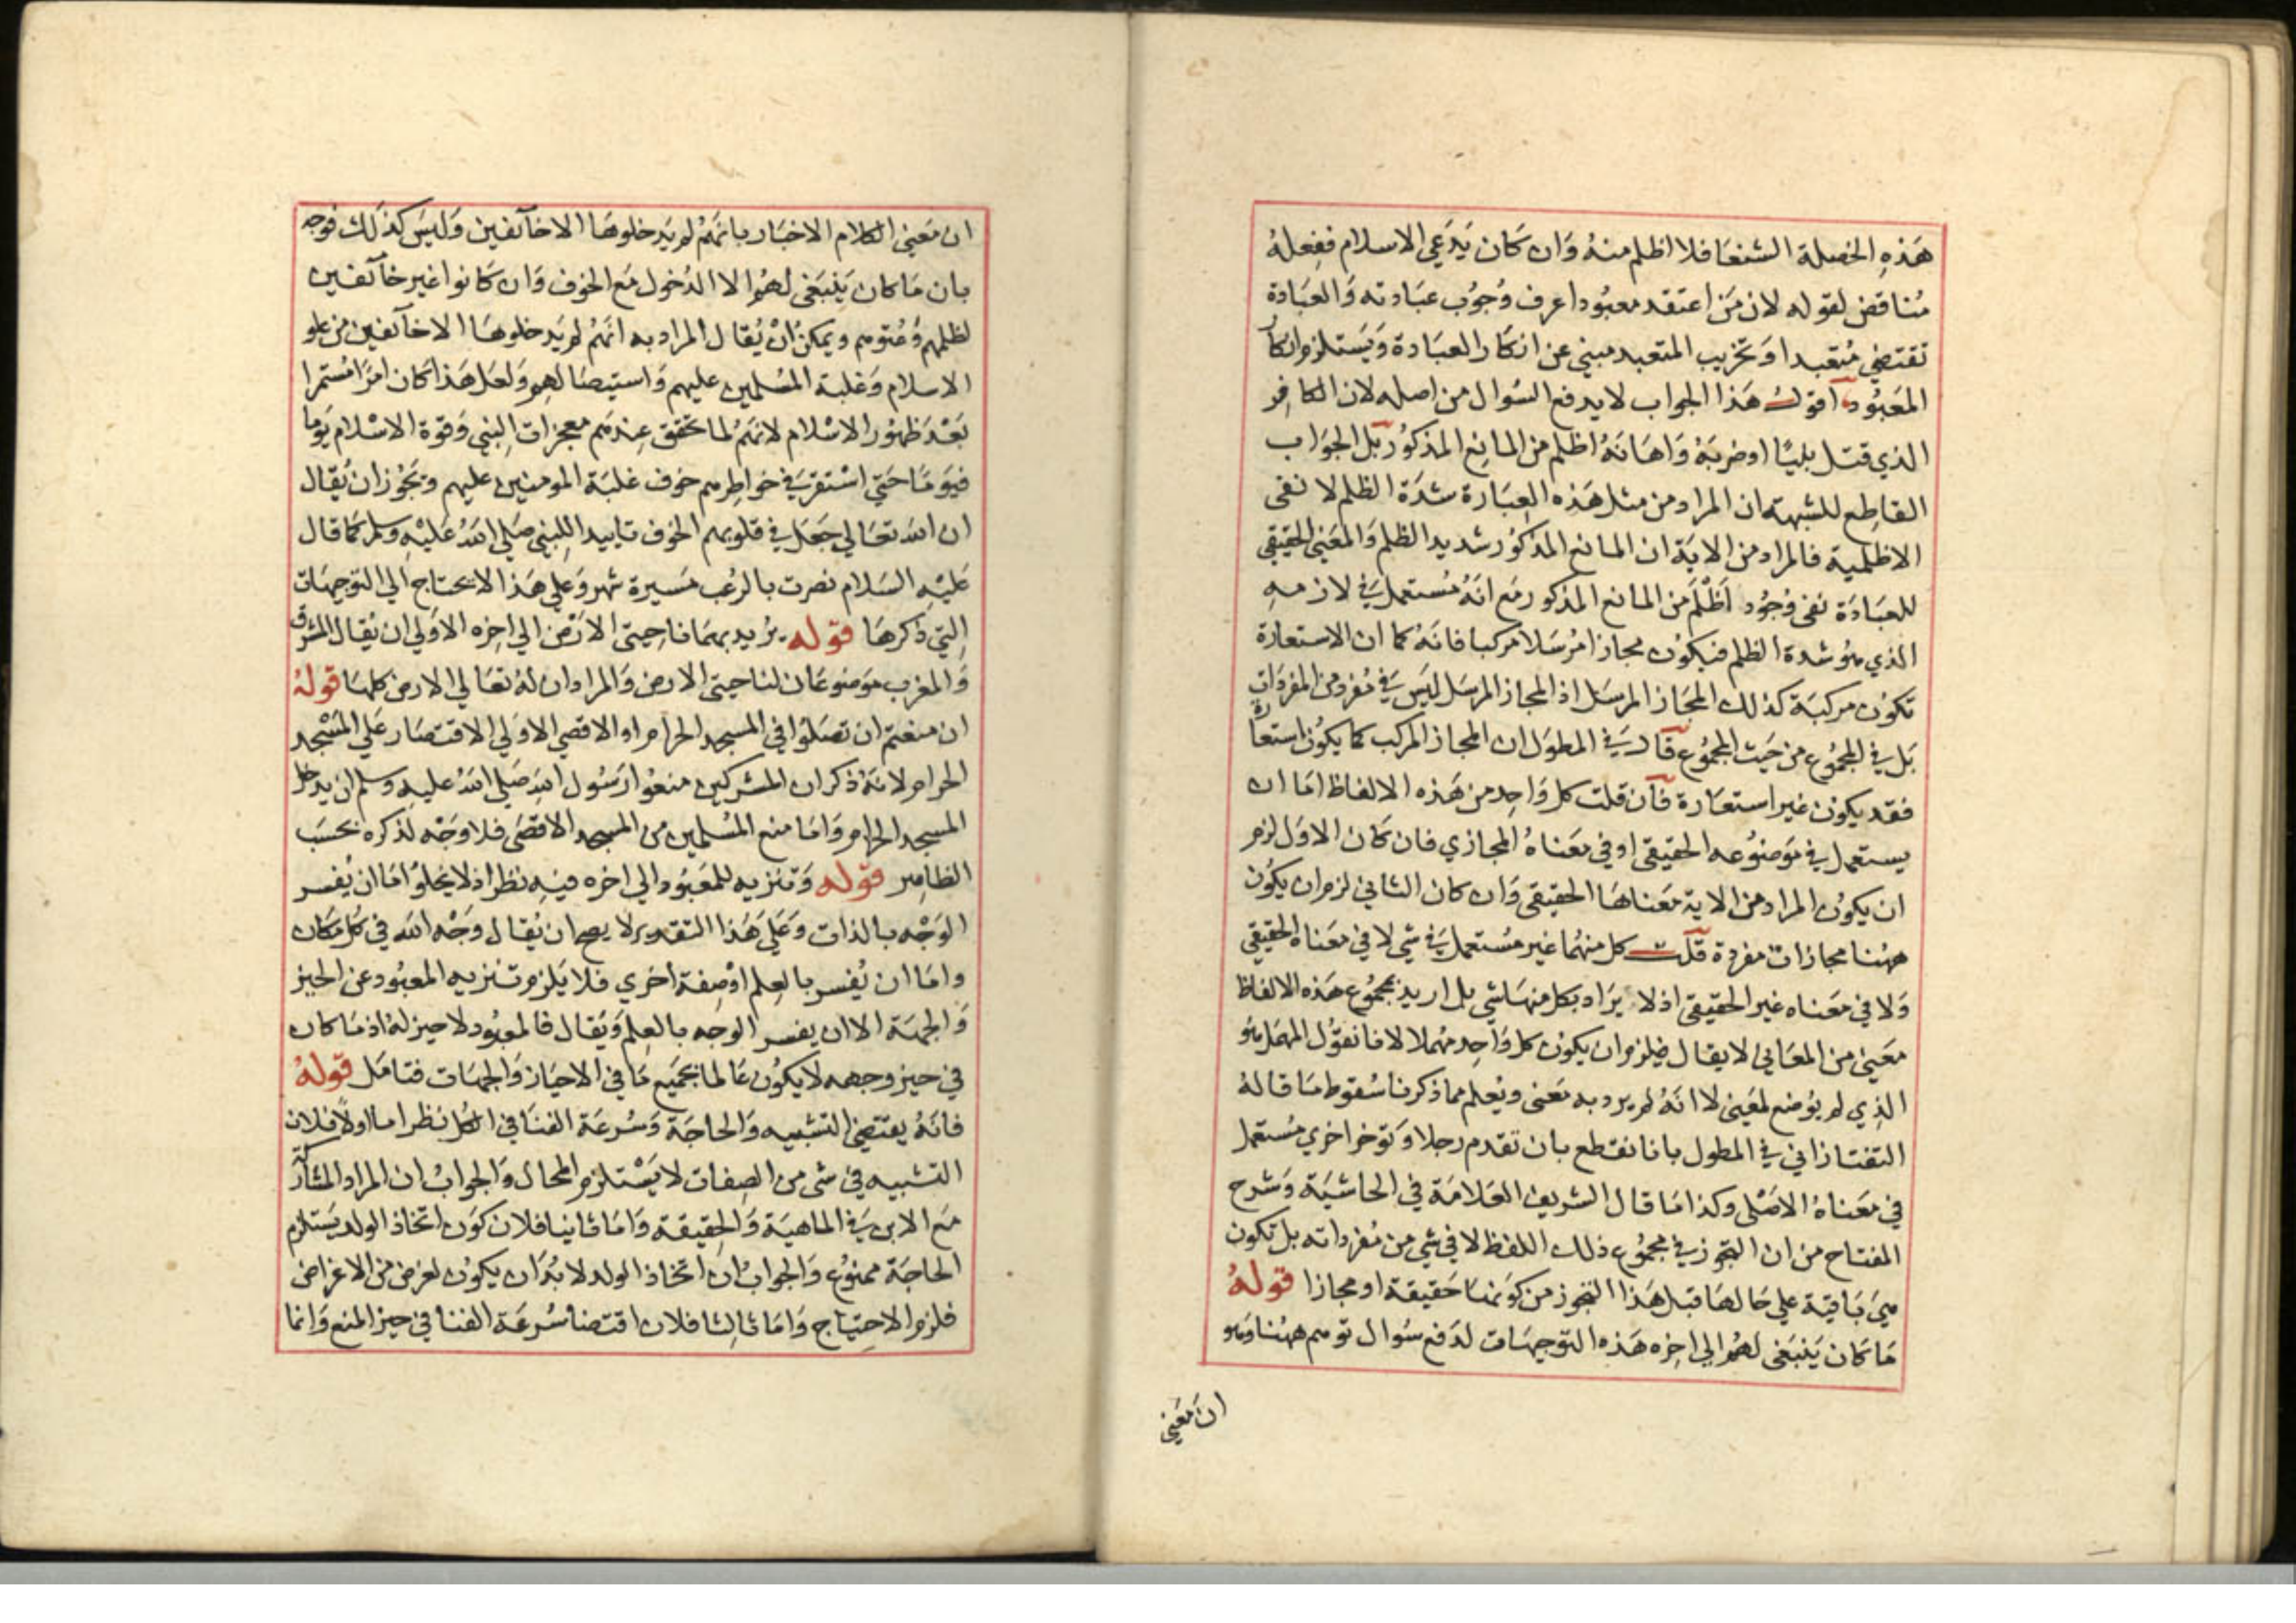 هَذِهِ الخصلة الشنعَا فلا اظلم منهُ وَان كَان يَدَعِي الاسلام ففِعلهُ
مُناقض لقوله لان مَن اعتقد معبُودا عرف وُجوُب عبَادته وَالعبَادة
تقتضي مُتعَبدا وَتخزيب المتعبد مبني عن انكار العبَادة وَيَستلزم انكار
المَعبُود اقول هَذا الجواب لا يدفع السُوال من اصله لان الكافِر
الذي قتل بليًا او ضربَهُ وَاهَانهُ اظلم من المانِع المذكوُر بَل الجوَاب
القاطِع للشبهة ان المراد من مثل هَذه العِبَارة شدَة الظلم لا نفى
الاظلمية فالمراد من الاية ان المانع المذكوُر شديد الظلم وَالمعَنى الحقيقي
للعبَادَة نفى وُجوُد اَظلَم مَن المانع المذكور مَع انهُ مُستعمل فِي لازمهِ
الذي هوُ شدة الظلم فيكوُن مجازا مُرسَلا مركبا فانهُ كما ان الاستعارة
تكوُن مركبَة كذلك المجَاز المرسَل اذ المجاز المرسَل ليَس فِي مُفرد من المفردَات
بَل فِي المجمُوع من حَيث المجمُوع قال فِي المطوَل ان المجاز المركب كما يكوُن استعارة
فقد يكون غير استعَارة فان قلت كل وَاحِد من هَذه الالفاظ امَا ان
يستعمل في مَوضوُعه الحقيقى او في مَعَناهُ المجازي فان كَان الاوَل لزم
ان يكوُن المراد من الاية مَعناهَا الحقيقى وَان كان الثاني لزم ان يكوُن
ههُنا مجازات مفردة قلت كل منهُما غير مُستعمل فِي شي لا في معَناه الحقيقي
وَلا في معَناه غير الحقيقي اذ لا يرَاد بكل منهَا شي بل اريد بمجمُوع هَذه الالفاظ
معَنى من المعَاني لا يقال فيلزم ان يكوُن كل وَاحِد مهُملا لانا نقوُل المهمَل هوُ
الذِي لم يوُضع لمعَنى لا انهُ لم يرد به مَعنى ويُعلم مما ذكرنا سُقوُط مَا قالهُ
التفتازاني في المطول بانا نقطع بان تقدم رجلا وَتؤخر اخري مُستعمل
في معَناهُ الاصَلى وكذا مَا قال الشريف العَلامَة في الحاشيَة وَشرح
المفتاح من ان التجوز في مجمُوع ذلك اللفظ لا في شي من مُفرداته بل تكون
هيَ بَاقية علي حَالهَا قبل هَذا التجوز من كوَنهَا حَقيقة او مجازا قولهُ
مَا كان يَنبَغى لهُم الي اخِره هَذه التوجيهَات لدَفع سُوال توهم ههُنا وَهو
ان مَعَنى
ان مَعنى الكلام الاخبَار بانهَمُ لم يَدخلوهَا الا خآئفين وَليسَ كذَلك فوجه
بان مَا كان يَنبَغى لهُم الا الدُخول مَع الخوف وَان كانوا غير خآئفين
لظلمهم وَعُتوهم ويمكن اَنْ يُقال المراد به انهَمُ لم يَدخلوهَا الا خآئفين من علو
الاسلام وَغلبة المسُلمين عليهم وَاستيصَالهم وَلعَل هَذا كان امرَا مُستمرا
بَعْدَ ظهوُر الاسْلام لانهَمُ لما تحقق عِندهَم معجزات النبي وَقوة الاسْلام يَومًا
فيَومًا حَتى استقر فِي خواطِرهم خوف غلبَة المومنين عليهم وَتجَوُز ان يُقال
ان الله تعَالي جَعَل في قلوبهم الخوف تاييد اللنبي صَلي الله عَليْهِ وسلم كمَا قال
عَليْهِ السَلام نصرت بالرعُب مَسيرة شهر وَعلي هَذا لا يحتاج الي التوجيهَات
التي ذكرهَا قوله يرُيد بهمَا ناحِيتى الارَض الي اخِره الاوَلي ان يُقال المشرق
وَالمغرب مَوضوعَان لناحيتى الارض وَالمراد ان لهُ تعَالي الارض كلهَا قولهُ
ان منعتم ان تصَلوُا في المسجد الحرام او الاقصي الاوَلي الاقتصَار علَي المسْجد
الحرام لانهَ ذكر ان المشركين منعوُا رَسوُل الله صَلي الله عليه وسلم ان يدخل
المسجد الحرام وَامَا منع المسُلمين من المسجد الاقصَى فلا وَجَه لذكره بحسَب
الظاهِر قوله وَتنزيه للمَعَبوُد الي اخره فيِهِ نظر اذ لا يخلوُا امَا ان يُفسر
الوَجْه بالذات وَعَلي هَذا التقدير لا يصح ان يُقال وَجْه الله في كل مَكان
وامَا ان يُفسر بالعِلم اوْصِفة اخري فلا يَلزم تنزيه المعَبوُد عن الحيز
وَالجهَة الا ان يفسر الوَجه بالعِلم وَيقال فالمعبوُد لا حيز لهُ اذ مَا كان
في حيز وجهه لا يكوُن عَالما بجميَع مَا في الاحيَاز وَالجهَات فتامَل قولهُ
فانهُ يقتضي التشبيه وَالحاجَة وَسُرعَة الفنَا في الكل نظر اما اولاً فلان
التشبيه في شى من الصِفات لا يَسْتلزم المحال وَالجوابُ ان المراد المشاركة
مَع الابن فِي الماهيَة وَالحِقيقة وَامَا ثانيا فلان كوَن اتخاذ الولد يَستلزم
الحاجَة ممنوُع وَالجوابُ ان اتخاذ الولد لا بُدَ ان يكوُن لغرض من الاغراض
فلزم الاحتِيَاج وَامَا ثالِثا فلان اقتضا سُرعَة الفنا في حيز المنع وَانما